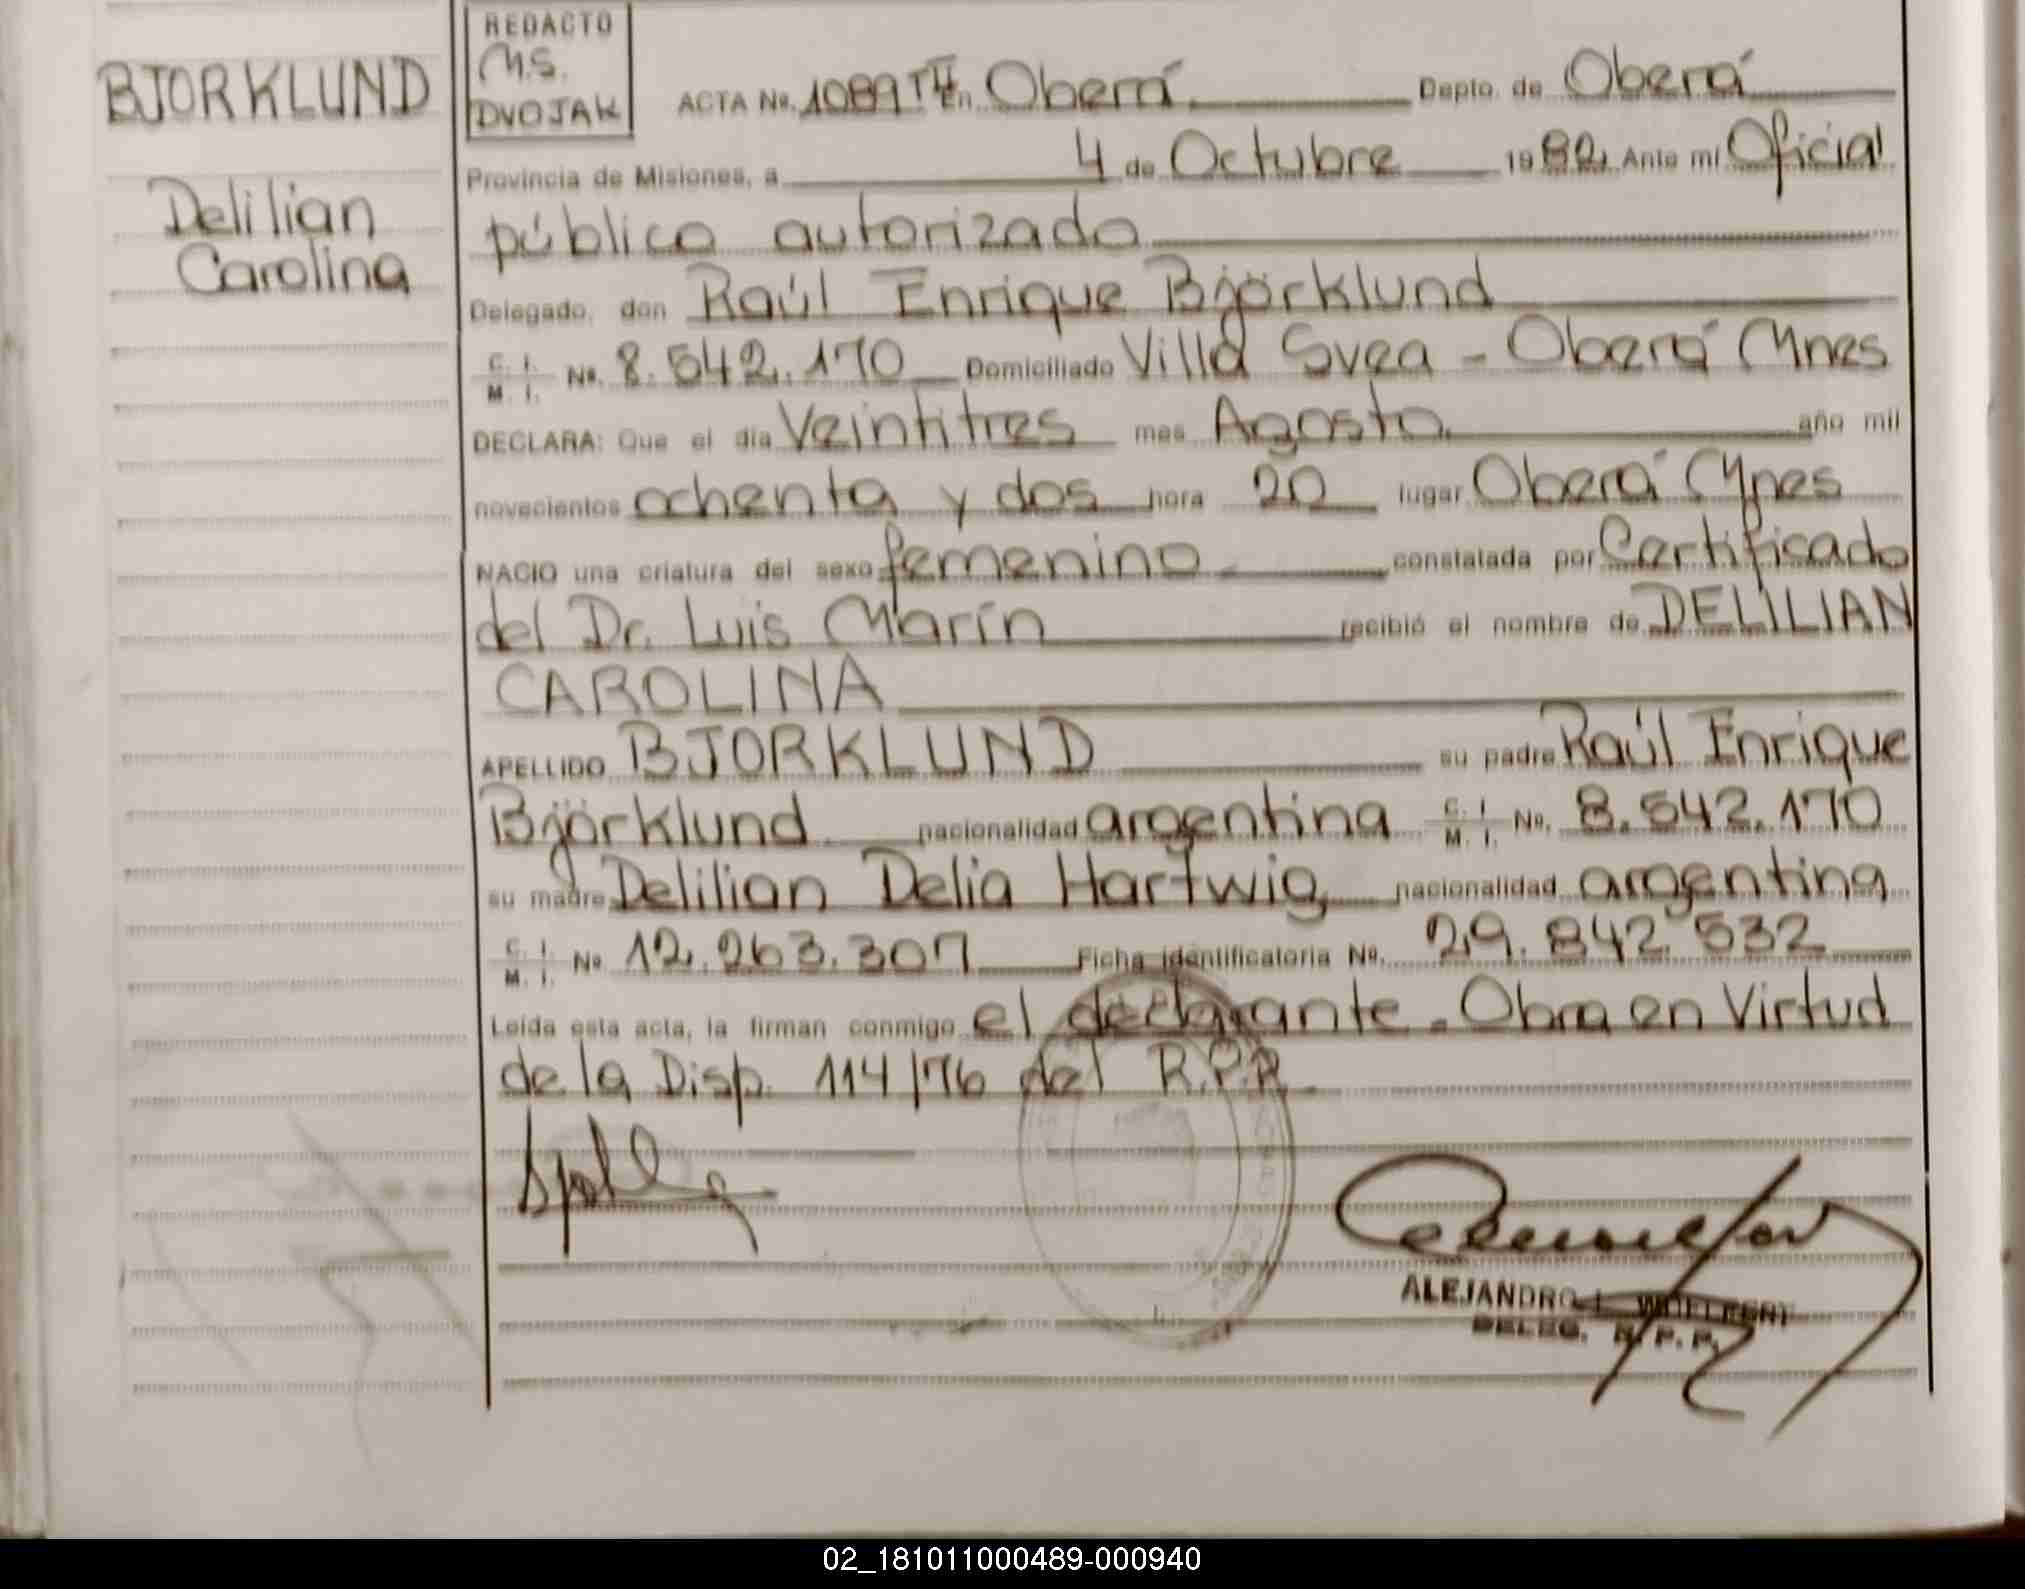 BJORKLUND
Delilian
Carolina
REDACTO
M.S.
DVOJAK
ACTA Nº. 1089 TII En Oberá Depto. de Oberá
Provincia de Misiones, a 4 de Octubre 1982. Ante mí Oficial
público autorizado
Delegado, don Raúl Enrique Björklund
C. I. M. I. Nº. 8.542.170 Domiciliado Villa Svea - Oberá Mnes
DECLARA: Que el día Veintitres mes Agosto año mil
novecientos ochenta y dos hora 20 lugar Oberá Mnes
NACIO una criatura del sexo femenino constatada por Certificado
del Dr. Luis Marín recibió el nombre de DELILIAN
CAROLINA
APELLIDO BJORKLUND su padre Raúl Enrique
Björklund nacionalidad argentina C. I. M. I. Nº. 8.542.170
su madre Delilian Delia Hartwig nacionalidad argentina
C. I. M. I. Nº 12.263.307 Ficha identificatoria Nº. 29.842.532
Leída esta acta, la firman conmigo el declarante. Obra en Virtud
de la Disp. 114/76 del R.P.P.
ALEJANDRO
DELEG. R. P. P.
02_181011000489-000940